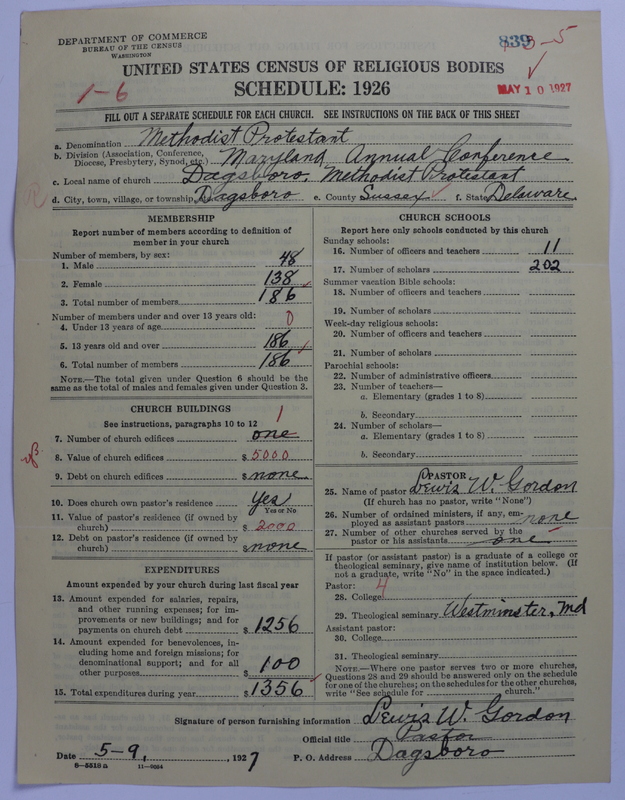 DEPARTMENT OF COMMERCE
BUREAU OF THE CENSUS
WASHINGTON
839
3-5
1-6
MAY 10 1927
UNITED STATES CENSUS OF RELIGIOUS BODIES
SCHEDULE: 1926
FILL OUT A SEPARATE SCHEDULE FOR EACH CHURCH. SEE INSTRUCTIONS ON THE BACK OF THIS SHEET
a. Denomination Methodist Protestant
b. Division (Association, Conference, Diocese, Presbytery, Synod, etc.) Maryland Annual Conference
c. Local name of church Dagsboro, Methodist Protestant
d. City, town, village, or township, etc. Dagsboro e. County Sussex f. State Delaware
MEMBERSHIP
Report number of members according to definition of
member in your church
Number of members, by sex:
1. Male 48
2. Female 138
3. Total number of members 186
Number of members under and over 13 years old:
4. Under 13 years of age 0
5. 13 years old and over 186
6. Total number of members 186
NOTE.—The total given under Question 6 should be the
same as the total of males and females given under Question 3.
CHURCH BUILDINGS
See instructions, paragraphs 10 to 12
7. Number of church edifices one 1
8. Value of church edifices $ 5000
9. Debt on church edifices $ none
10. Does church own pastor's residence Yes
Yes or No
11. Value of pastor's residence (if owned by
church) $ 2000
12. Debt on pastor's residence (if owned by
church) $ none
EXPENDITURES
Amount expended by your church during last fiscal year
13. Amount expended for salaries, repairs,
and other running expenses; for im-
provements or new buildings; and for
payments on church debt $ 1256
14. Amount expended for benevolences, in-
cluding home and foreign missions; for
denominational support; and for all
other purposes $ 100
15. Total expenditures during year $ 1356
CHURCH SCHOOLS
Report here only schools conducted by this church
Sunday schools:
16. Number of officers and teachers 11
17. Number of scholars 202
Summer vacation Bible schools:
18. Number of officers and teachers
19. Number of scholars
Week-day religious schools:
20. Number of officers and teachers
21. Number of scholars
Parochial schools:
22. Number of administrative officers
23. Number of teachers—
a. Elementary (grades 1 to 8)
b. Secondary
24. Number of scholars—
a. Elementary (grades 1 to 8)
b. Secondary
PASTOR
25. Name of pastor Lewis W. Gordon
(If church has no pastor, write "None")
26. Number of ordained ministers, if any, em-
ployed as assistant pastors none
27. Number of other churches served by the
pastor or his assistants one
If pastor (or assistant pastor) is a graduate of a college or
theological seminary, give name of institution below. (If
not a graduate, write "No" in the space indicated.)
Pastor: 4
28. College
29. Theological seminary Westminster, Md
Assistant pastor:
30. College
31. Theological seminary
NOTE.—Where one pastor serves two or more churches,
Questions 28 and 29 should be answered only on the schedule
for one of the churches; on the schedules for the other churches,
write "See schedule for church."
Signature of person furnishing information Lewis W. Gordon
Official title Pastor
Date 5-9, 1927 P. O. Address Dagsboro
8-5518a 11-9064